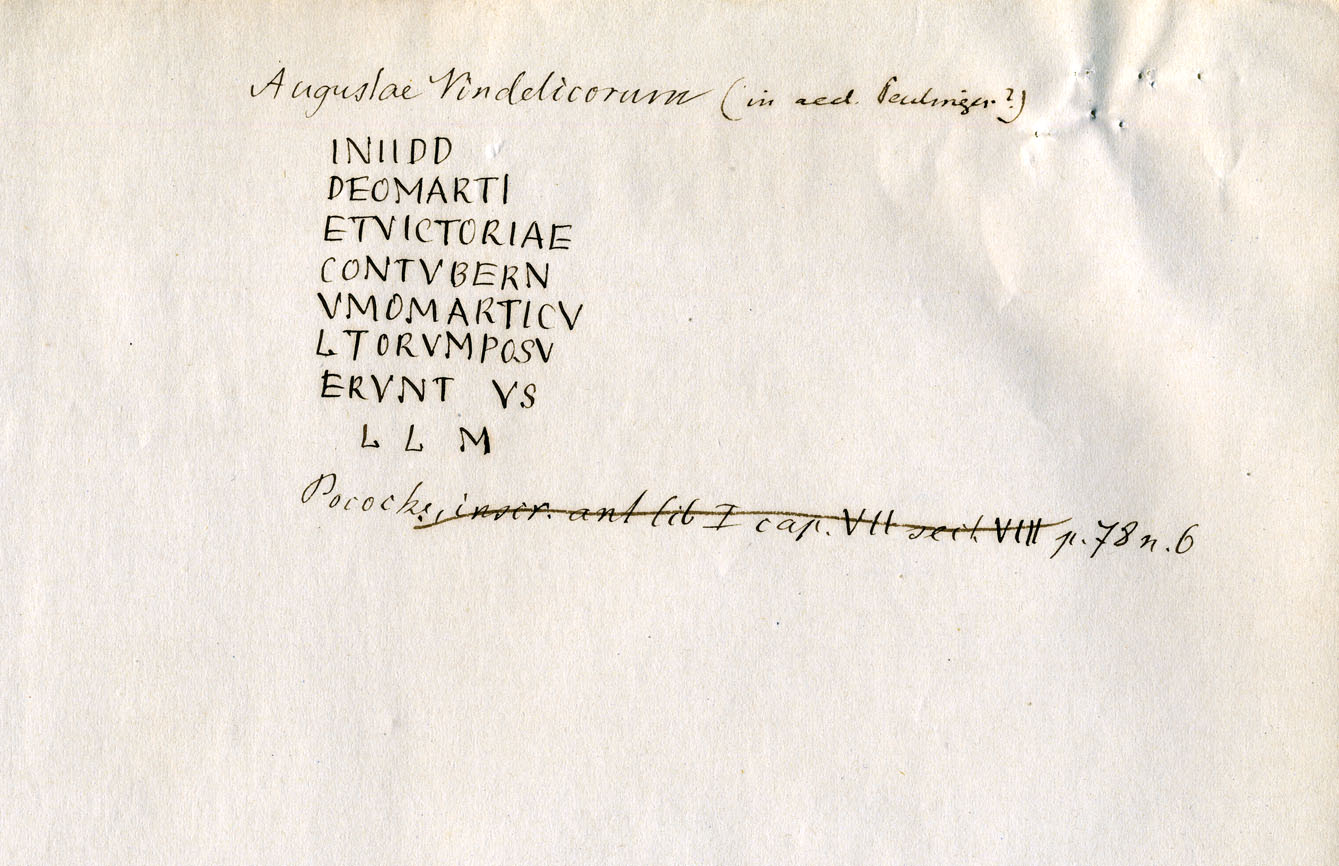 Augustae Vindelicorum (in aed. Peutinger.?)
INIIDD
DEOMARTI
ETVICTORIAE
CONTVBERN
VMOMARTICV
LTORVMPOSV
ERVNT VS
L L M
Pococke, inscr. ant lib I cap. VII sect. VIII p. 78 n. 6